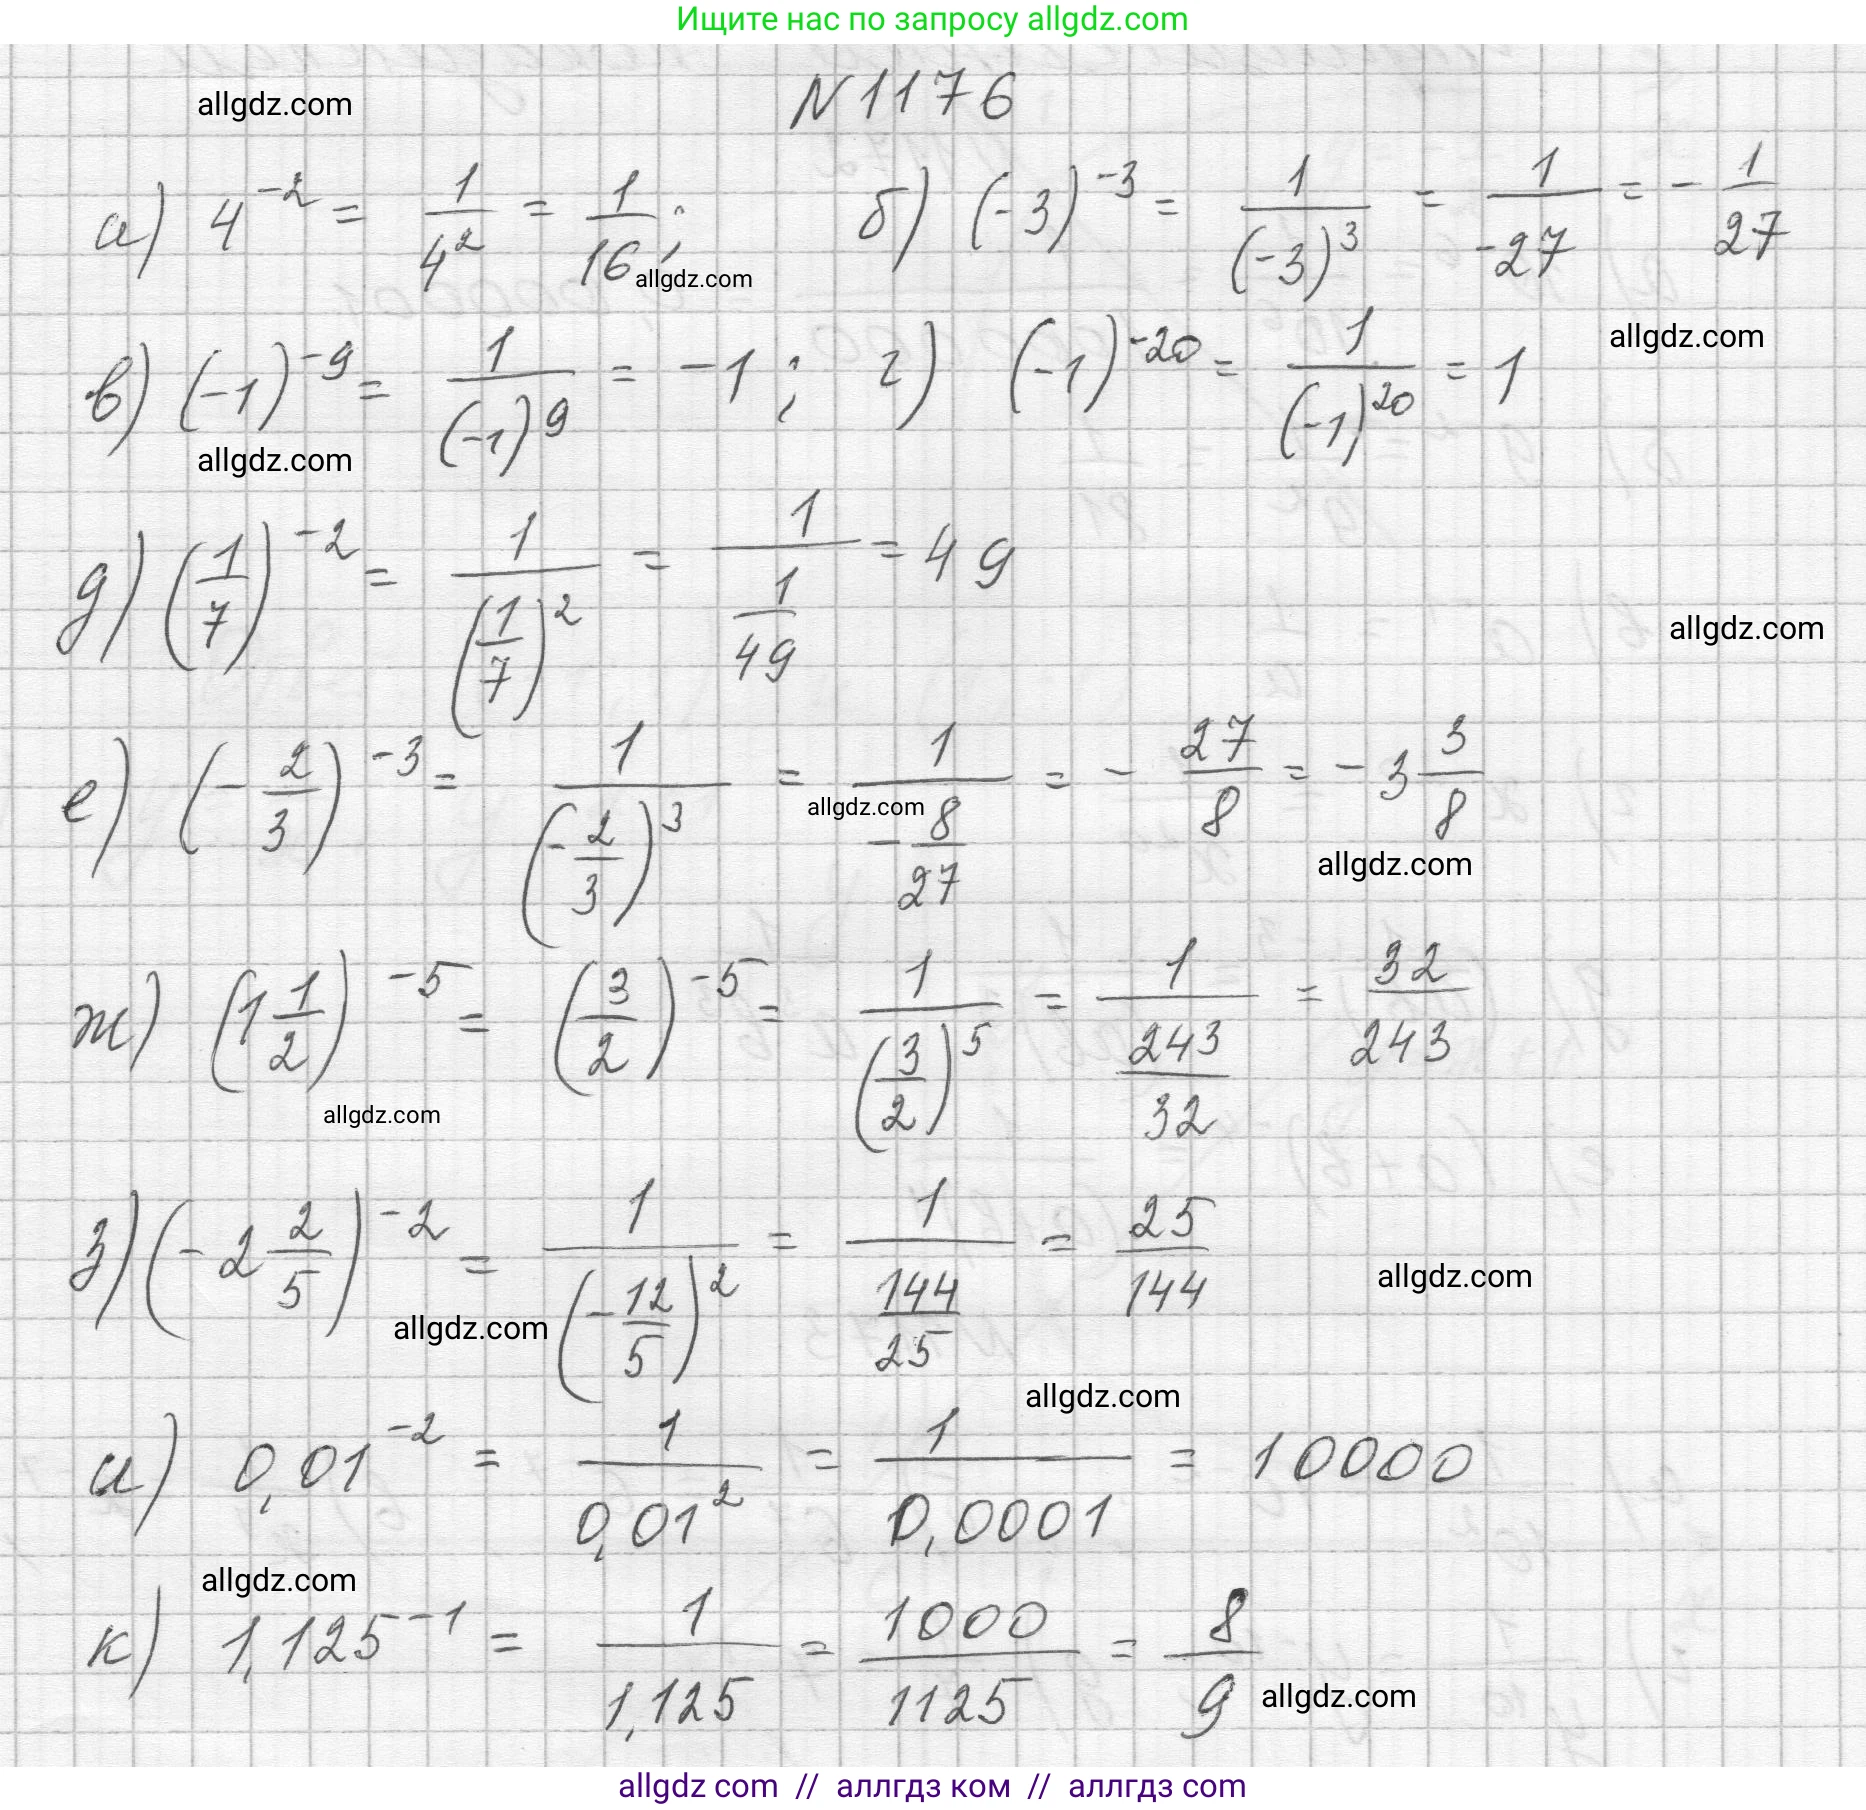 Ищите нас по запросу allgdz.com
allgdz.com
N 1176
а) 4^{-2} = \frac{1}{4^2} = \frac{1}{16}; б) (-3)^{-3} = \frac{1}{(-3)^3} = \frac{1}{-27} = -\frac{1}{27}
allgdz.com
allgdz.com
в) (-1)^{-9} = \frac{1}{(-1)^9} = -1; г) (-1)^{-20} = \frac{1}{(-1)^{20}} = 1
allgdz.com
д) (\frac{1}{7})^{-2} = \frac{1}{(\frac{1}{7})^2} = \frac{1}{\frac{1}{49}} = 49
allgdz.com
е) (-\frac{2}{3})^{-3} = \frac{1}{(-\frac{2}{3})^3} = \frac{1}{-\frac{8}{27}} = -\frac{27}{8} = -3\frac{3}{8}
allgdz.com
allgdz.com
ж) (1\frac{1}{2})^{-5} = (\frac{3}{2})^{-5} = \frac{1}{(\frac{3}{2})^5} = \frac{1}{\frac{243}{32}} = \frac{32}{243}
allgdz.com
з) (-2\frac{2}{5})^{-2} = \frac{1}{(-\frac{12}{5})^2} = \frac{1}{\frac{144}{25}} = \frac{25}{144}
allgdz.com
allgdz.com
allgdz.com
и) 0,01^{-2} = \frac{1}{0,01^2} = \frac{1}{0,0001} = 10000
allgdz.com
к) 1,125^{-1} = \frac{1}{1,125} = \frac{1000}{1125} = \frac{8}{9}
allgdz.com
allgdz com // аллгдз ком // аллгдз com